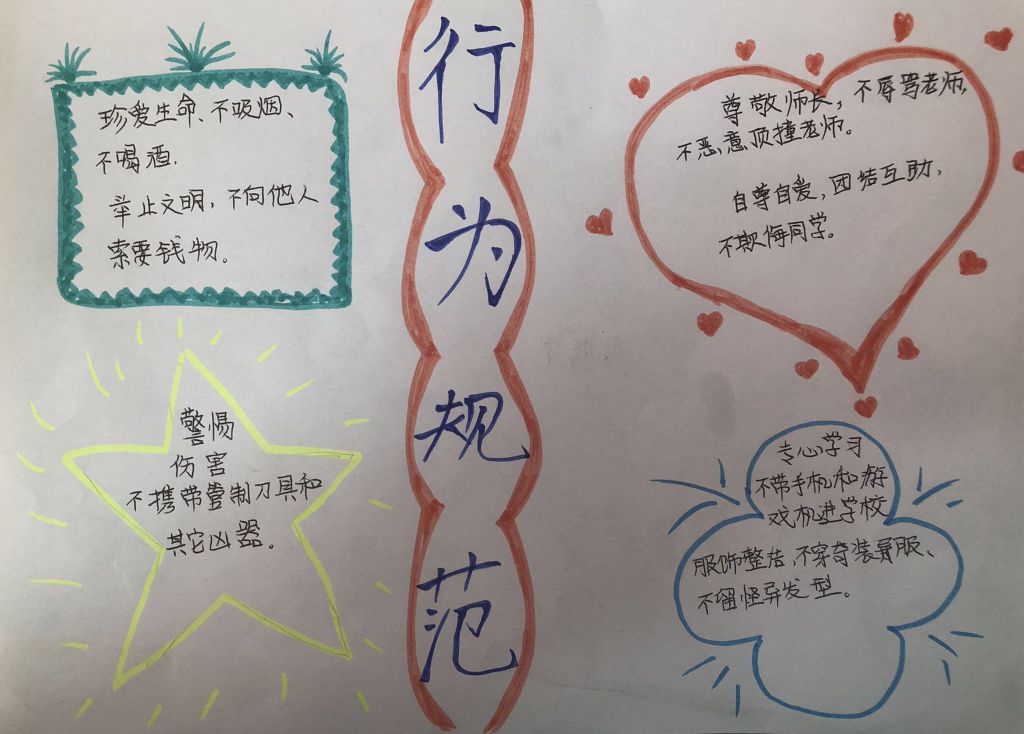 行为规范
珍爱生命、不吸烟、
不喝酒.
举止文明，不向他人
索要钱物。
尊敬师长，不辱骂老师，
不恶意顶撞老师。
自尊自爱，团结互助，
不欺侮同学。
警惕
伤害
不携带管制刀具和
其它凶器。
专心学习
不带手机和游
戏机进学校
服饰整洁，不穿奇装异服、
不留怪异发型。